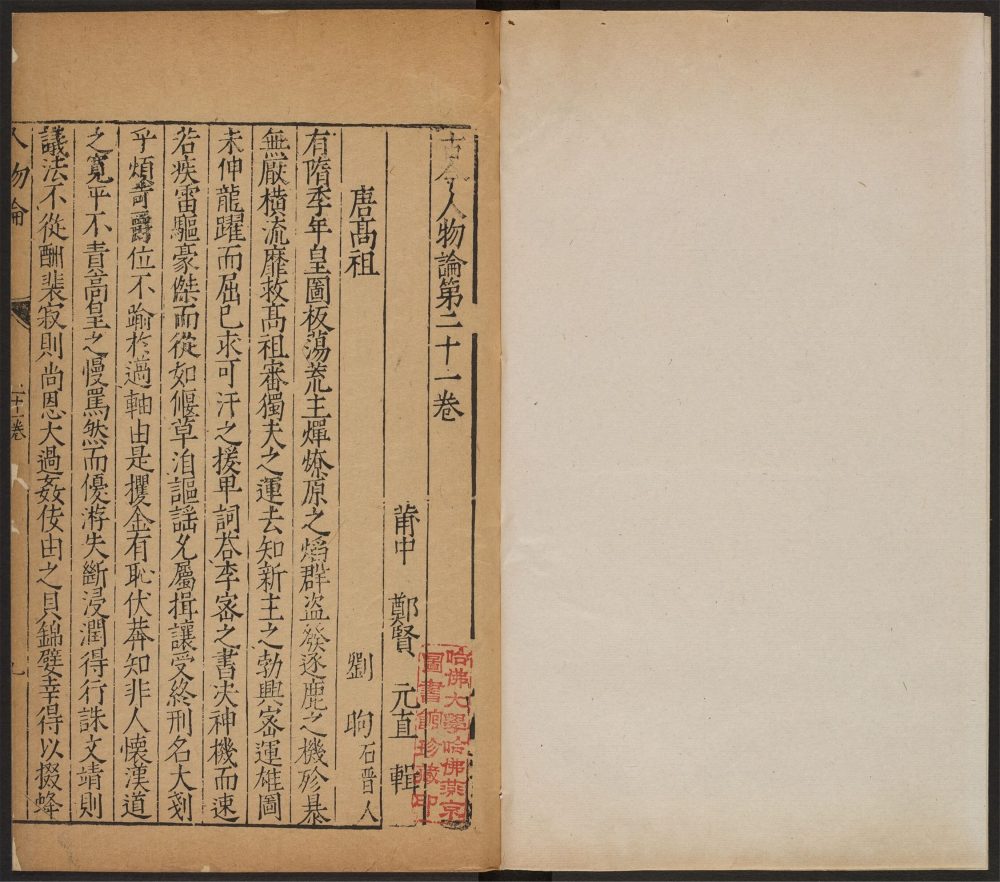 古今人物論第二十一卷
莆中 鄭賢 元直 輯
唐髙祖
劉昫 石晋人
有隋季年皇圖板蕩荒主燀燎原之熖群盗發逐鹿之機殄暴
無厭横流靡救髙祖審獨夫之運去知新主之勃興宻運雄圖
未伸龍躍而屈已求可汗之援卑詞荅李宻之書决神機而速
若疾雷驅豪傑而從如偃草洎謳謡允屬揖讓受終刑名大剗
乎煩苛爵位不踰於適軸由是攫金有恥伏莽知非人懷漢道
之寛平不責高皇之慢罵然而優游失斷浸潤得行誅文靖則
議法不從酬裴寂則尚恩太過姦佞由之貝錦嬖幸得以掇蜂
人物論
二十一卷
一
哈佛大學哈佛燕京
圖書館珍藏印